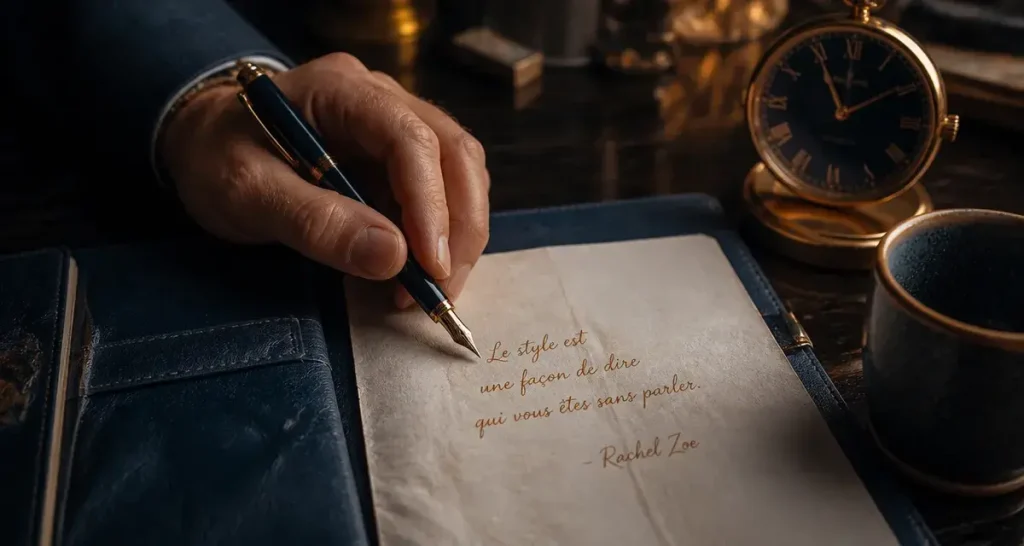 Le style est
une façon de dire
qui vous êtes sans parler.
- Rachel Zoe